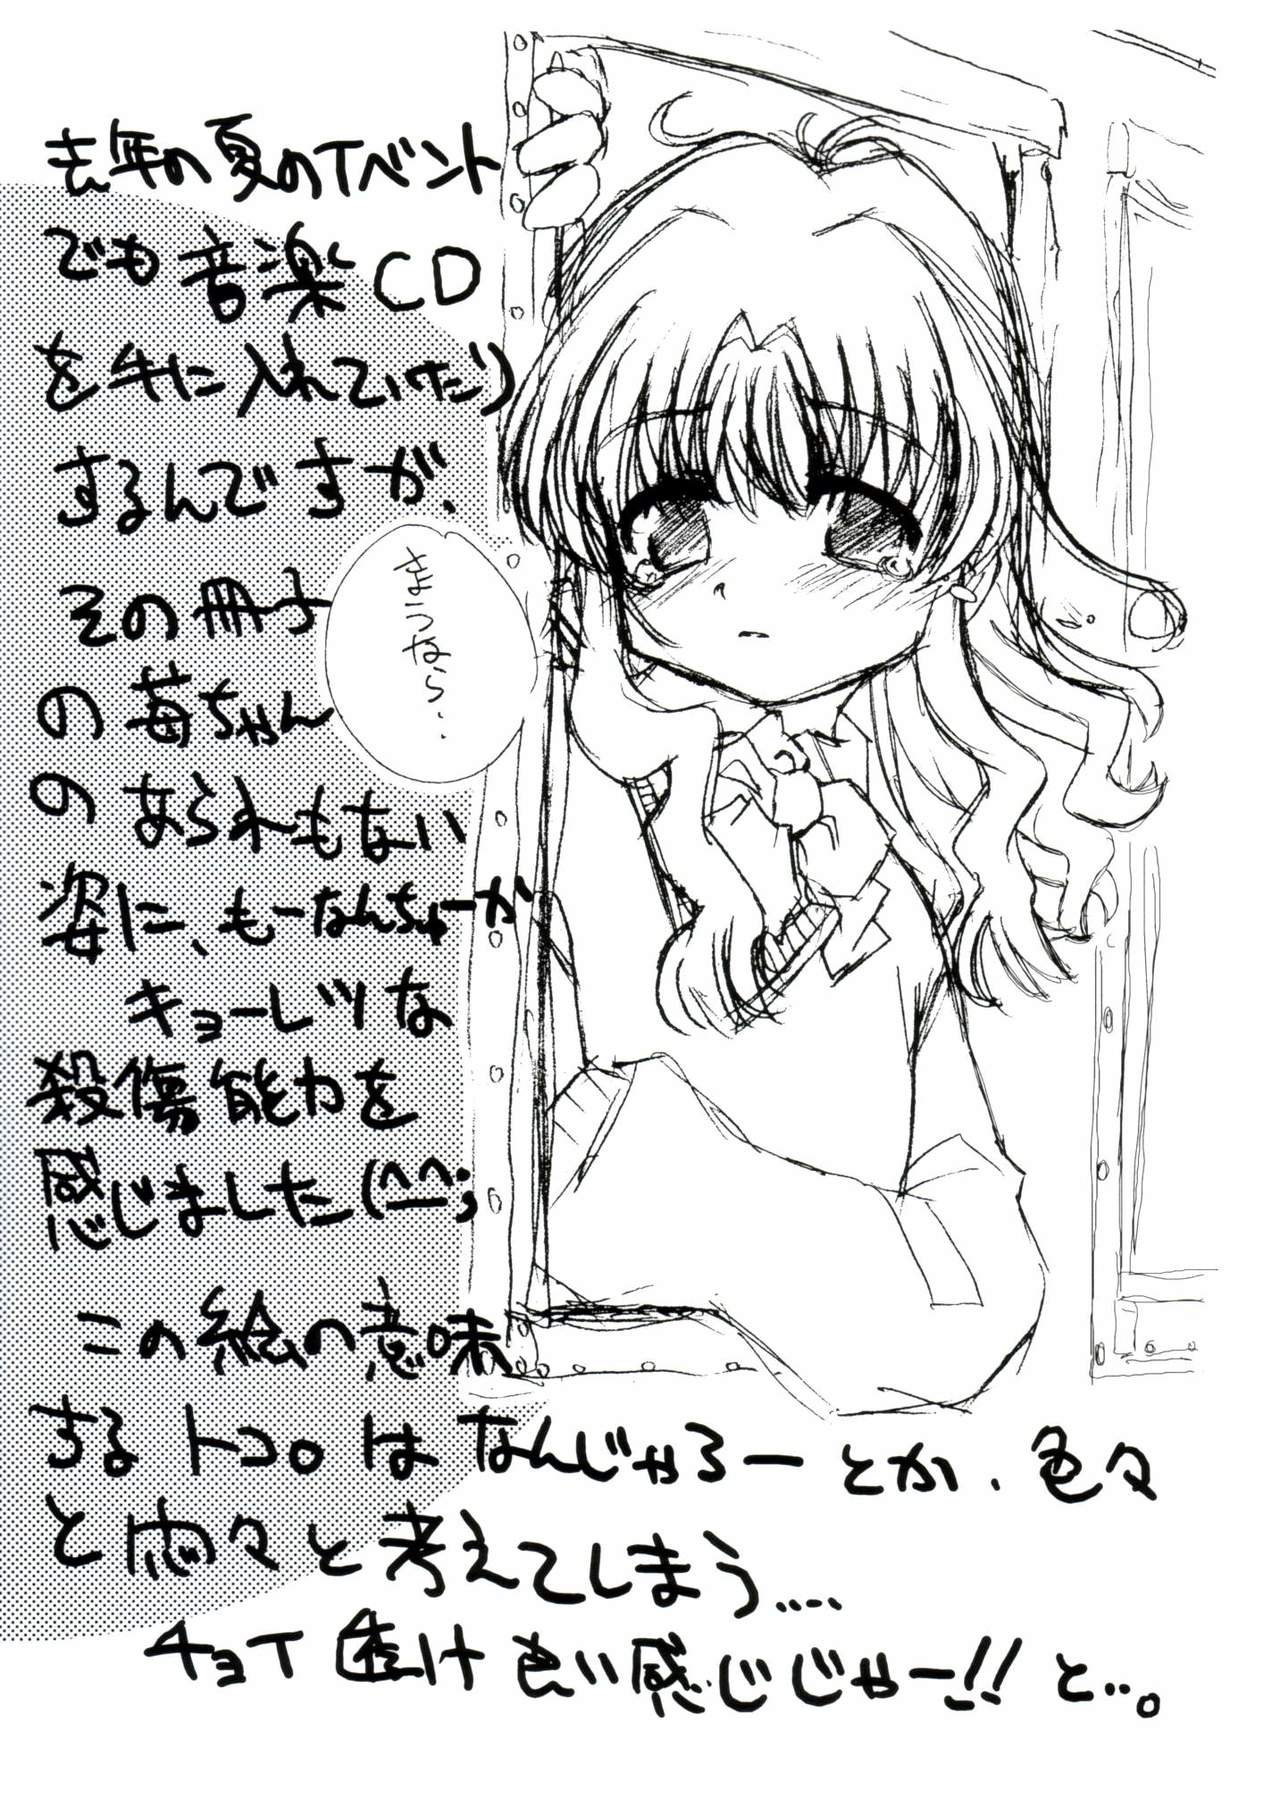 去年の夏のイベント
でも音楽CD
を手に入れていたり
するんですが、
その冊子
の苺ちゃん
のあられもない
姿に、もーなんちゅーか
キョーレツな
殺傷能力を
感じました(^^;
この絵の意味
するトコロはなんじゃろーとか、色々
と悶々と考えてしまう....
チョイ透け良い感じじゃー!!と…。
さうなら.